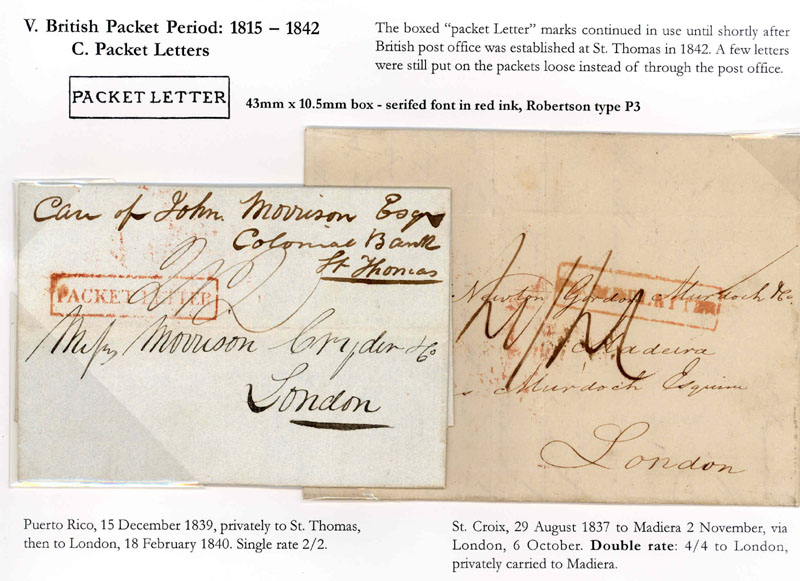 V. British Packet Period: 1815 – 1842
C. Packet Letters
The boxed “packet Letter” marks continued in use until shortly after
British post office was established at St. Thomas in 1842. A few letters
were still put on the packets loose instead of through the post office.
PACKET LETTER
43mm x 10.5mm box - serifed font in red ink, Robertson type P3
Care of John Morrison Esqr
Colonial Bank
St Thomas
2/2
PACKET LETTER
Messrs Morrison Cryder & Co
London
Newton Gordon Murdoch & Co.
Madeira
Murdoch Esquire
London
Puerto Rico, 15 December 1839, privately to St. Thomas,
then to London, 18 February 1840. Single rate 2/2.
St. Croix, 29 August 1837 to Madiera 2 November, via
London, 6 October. Double rate: 4/4 to London,
privately carried to Madiera.